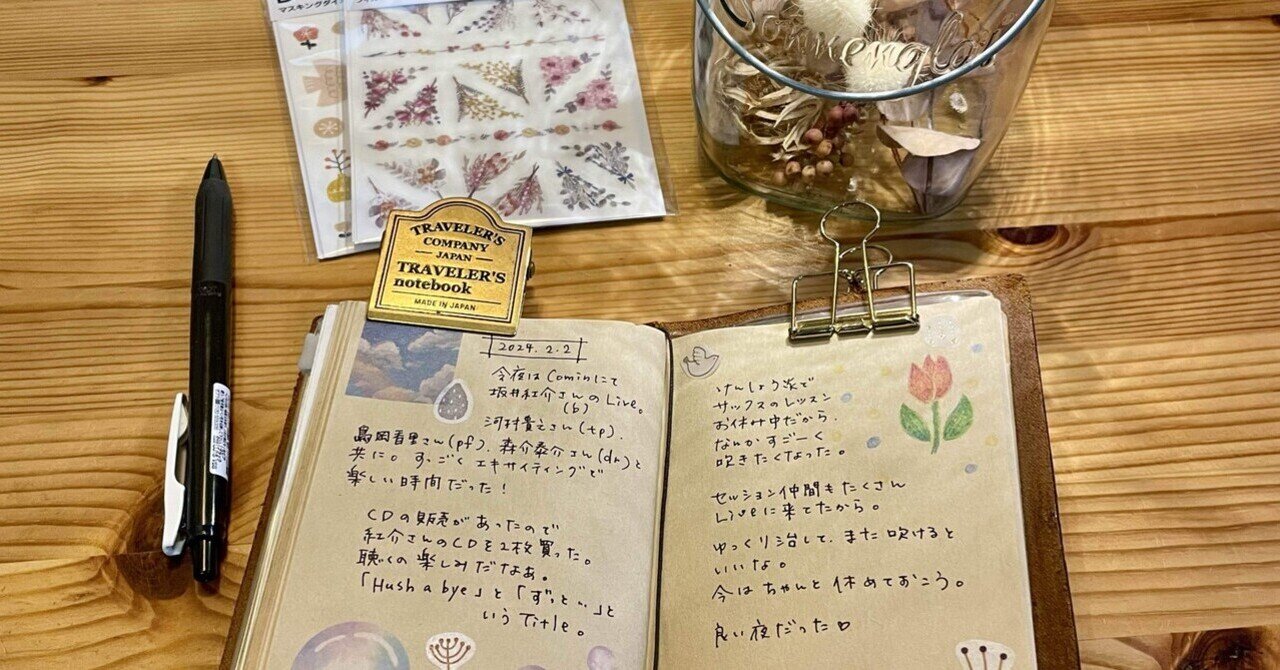 マスキング
Sonnenglas
TRAVELER'S
COMPANY
JAPAN
TRAVELER'S
notebook
MADE IN JAPAN
2024.2.2
今夜は Cominにて
坂井紅介さんのLive。
(b)
河村貴之さん(tp)、
島岡有里さん(pf)、森介泰介さん(dr)と
共に。すっごくエキサイティングで
楽しい時間だった！
CDの販売があったので
紅介さんのCDを2枚買った。
聴くの楽しみだなぁ。
「Hush a bye」と「ずっと…」と
いうTitle。
けんしょう炎で
サックスのレッスン
お休み中だから、
なんかすごーく
吹きたくなった。
セッション仲間もたくさん
Liveに来てたから。
ゆっくり治して、また吹けると
いいな。
今はちゃんと休めておこう。
良い夜だった♡